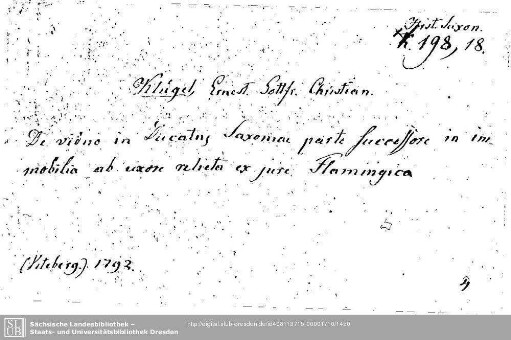 Hist. Saxon.
K. 198, 18.
Klügel, Ernest. Gottfr. Christian.
De viduo in Ducatus Saxoniae parte successore in im-
mobilia ab uxore relicta ex jure Flamingica
(Viteberg.) 1792.
SLUB
Sächsische Landesbibliothek –
Staats- und Universitätsbibliothek Dresden